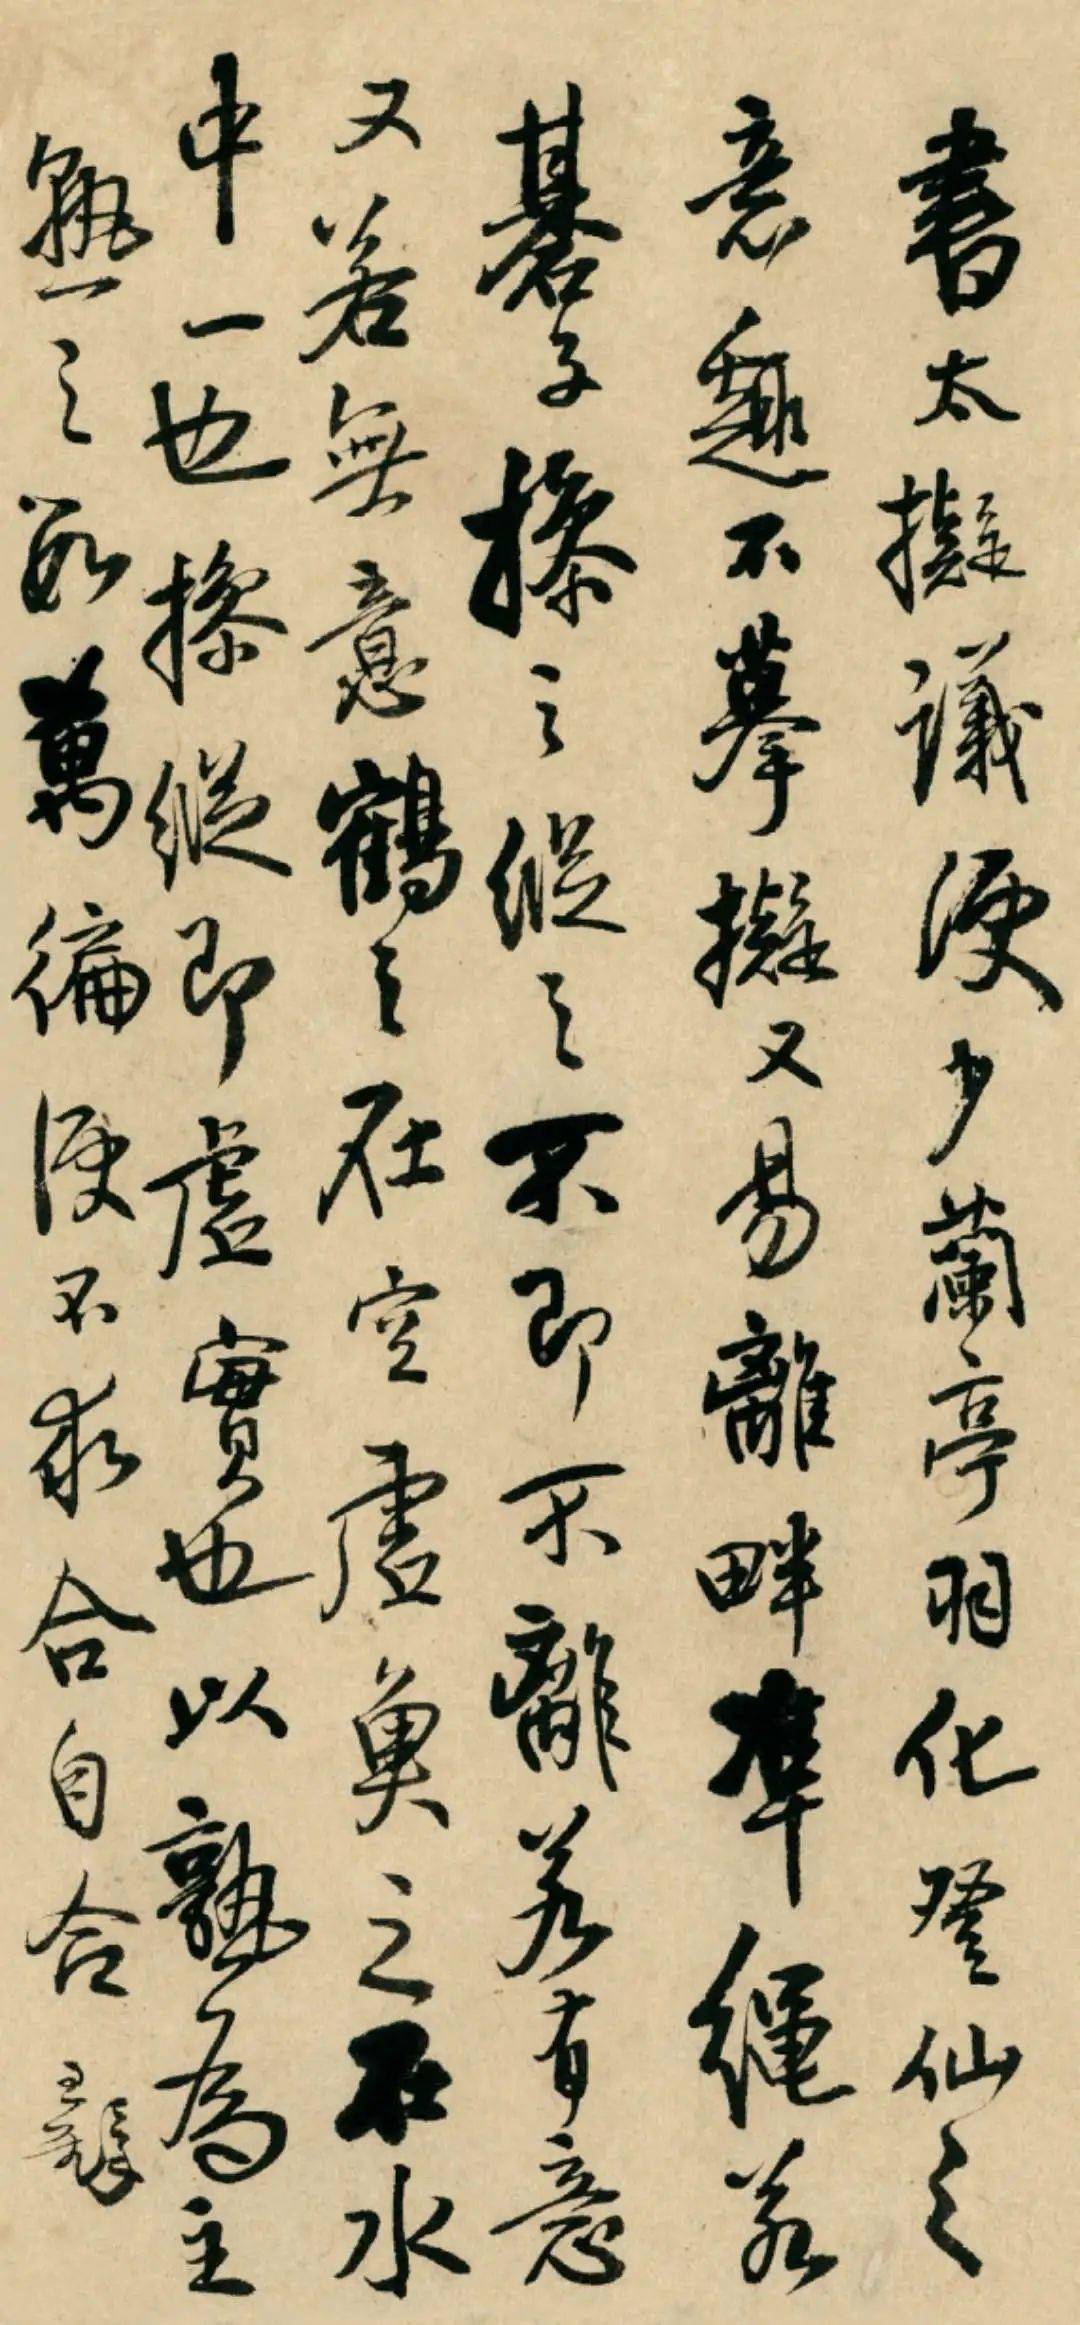 書太擬議便少蘭亭羽化登仙之
意趣不摹擬又易離畔準繩若
碁子操之縱之不即不離若有意
又若無意鶴之在空虛魚之在水
中一也操縱即虛實也以熟為主
熟之數萬徧便不求合自合